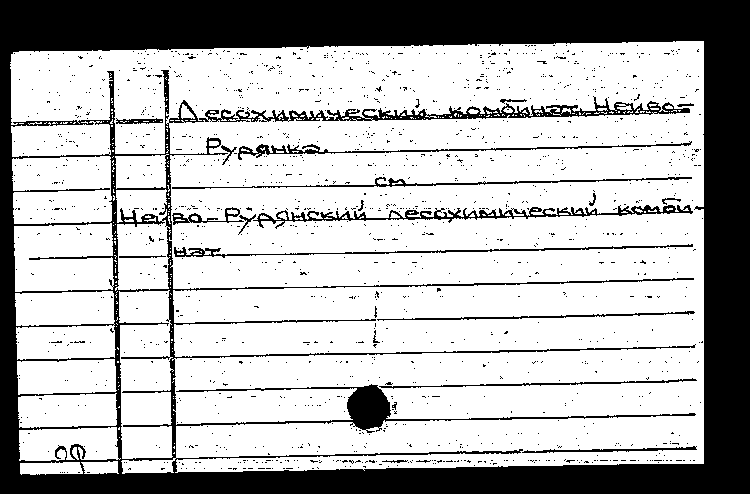 Лесохимический комбинат Нейво=
Рудянка.
см
Нейво-Рудянский лесохимический комби-
нат.
оф